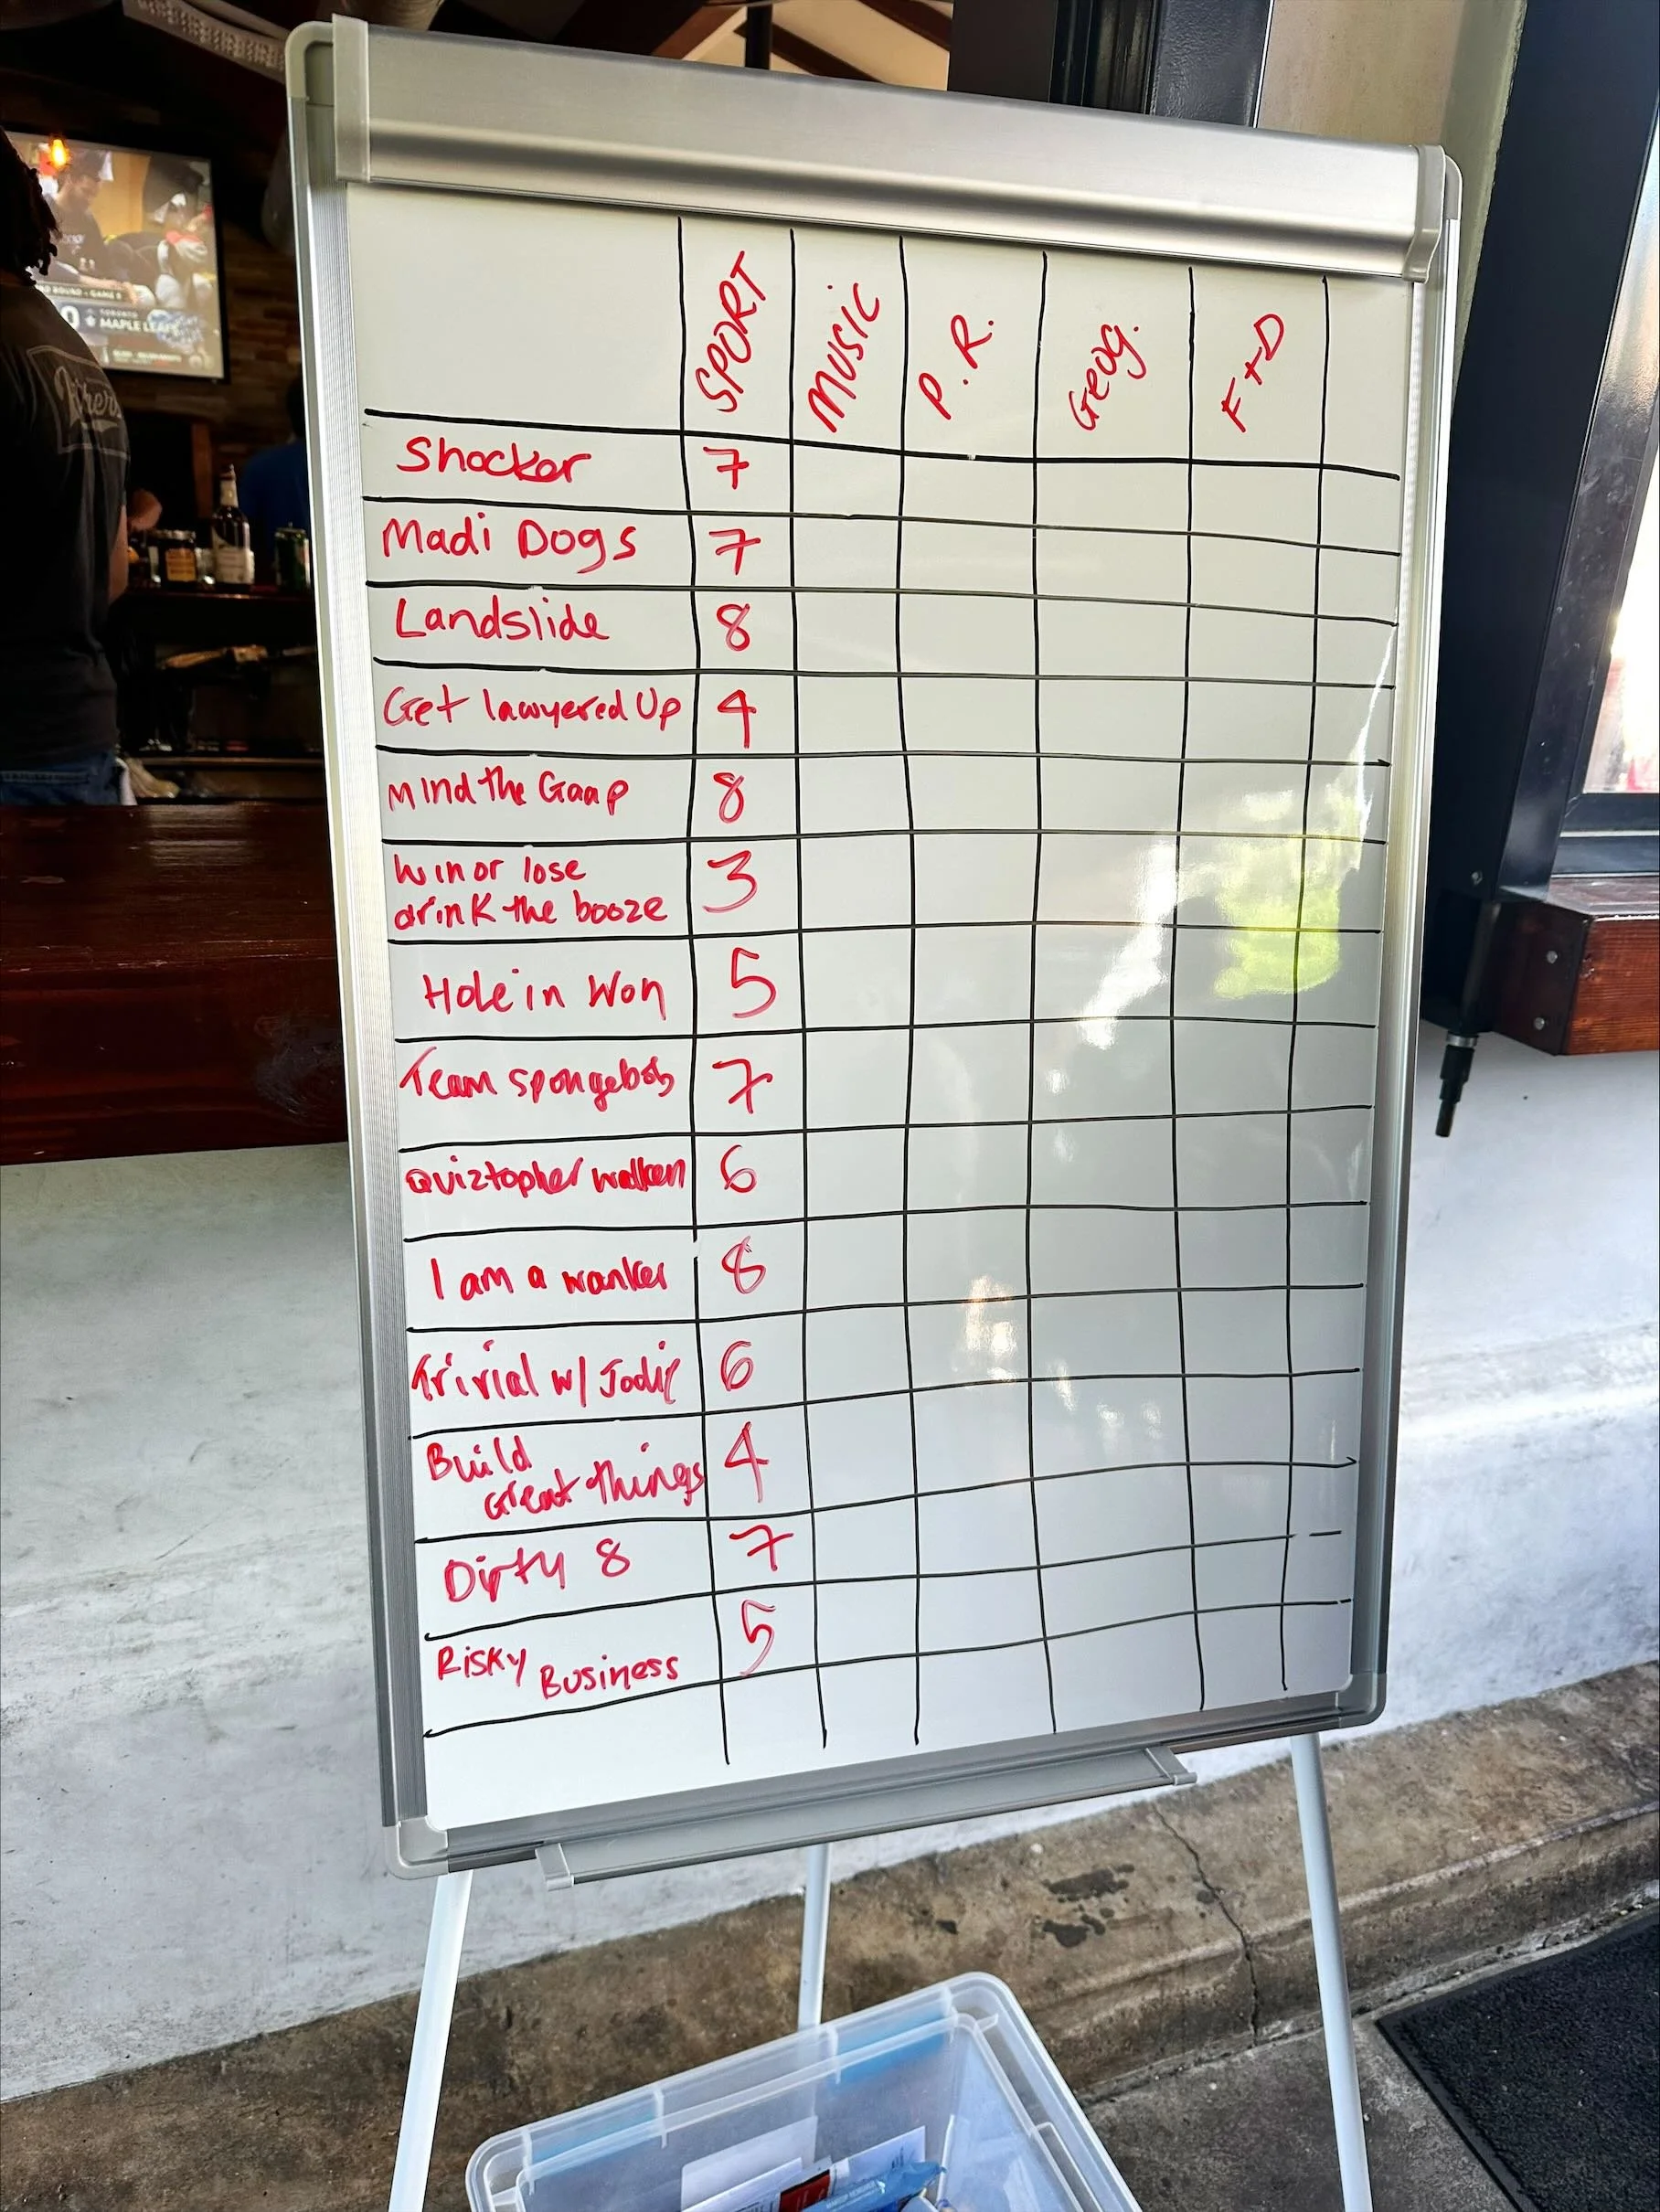 MAPLE LEAFS
SPORT MUSIC P.R. Geog. F+D
Shocker 7
Madi Dogs 7
Landslide 8
Get lawyered Up 4
Mind the Gaap 8
Win or lose
drink the booze 3
Hole in Won 5
Team spongebob 7
Quiztopher walken 6
I am a wanker 8
Trivial w/ Jodie 6
Build
Great things 4
Dirty 8 7
Risky Business 5